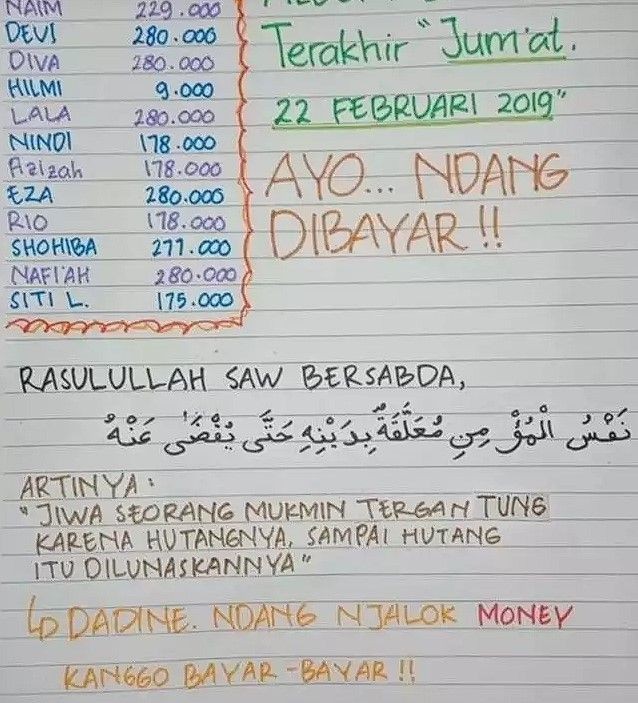 NAIM 229.000
DEVI 280.000
DIVA 280.000
HILMI 9.000
LALA 280.000
NINDI 178.000
Azizah 178.000
EZA 280.000
RIO 178.000
SHOHIBA 277.000
NAFI'AH 280.000
SITI L. 175.000
Terakhir "Jum'at.
22 FEBRUARI 2019"
AYO... NDANG
DIBAYAR !!
RASULULLAH SAW BERSABDA,
نَفْسُ الْمُؤْ مِنِ مُعَلَّقَةٌ بِدَيْنِهِ حَتَّى يُقْضَى عَنْهُ
ARTINYA :
"JIWA SEORANG MUKMIN TERGAN TUNG
KARENA HUTANGNYA, SAMPAI HUTANG
ITU DILUNASKANNYA"
DADINE. NDANG NJALOK MONEY
KANGGO BAYAR-BAYAR !!